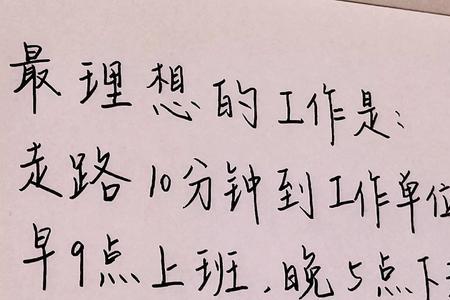 最理想的工作是:
走路10分钟到工作单位
早9点上班,晚5点下